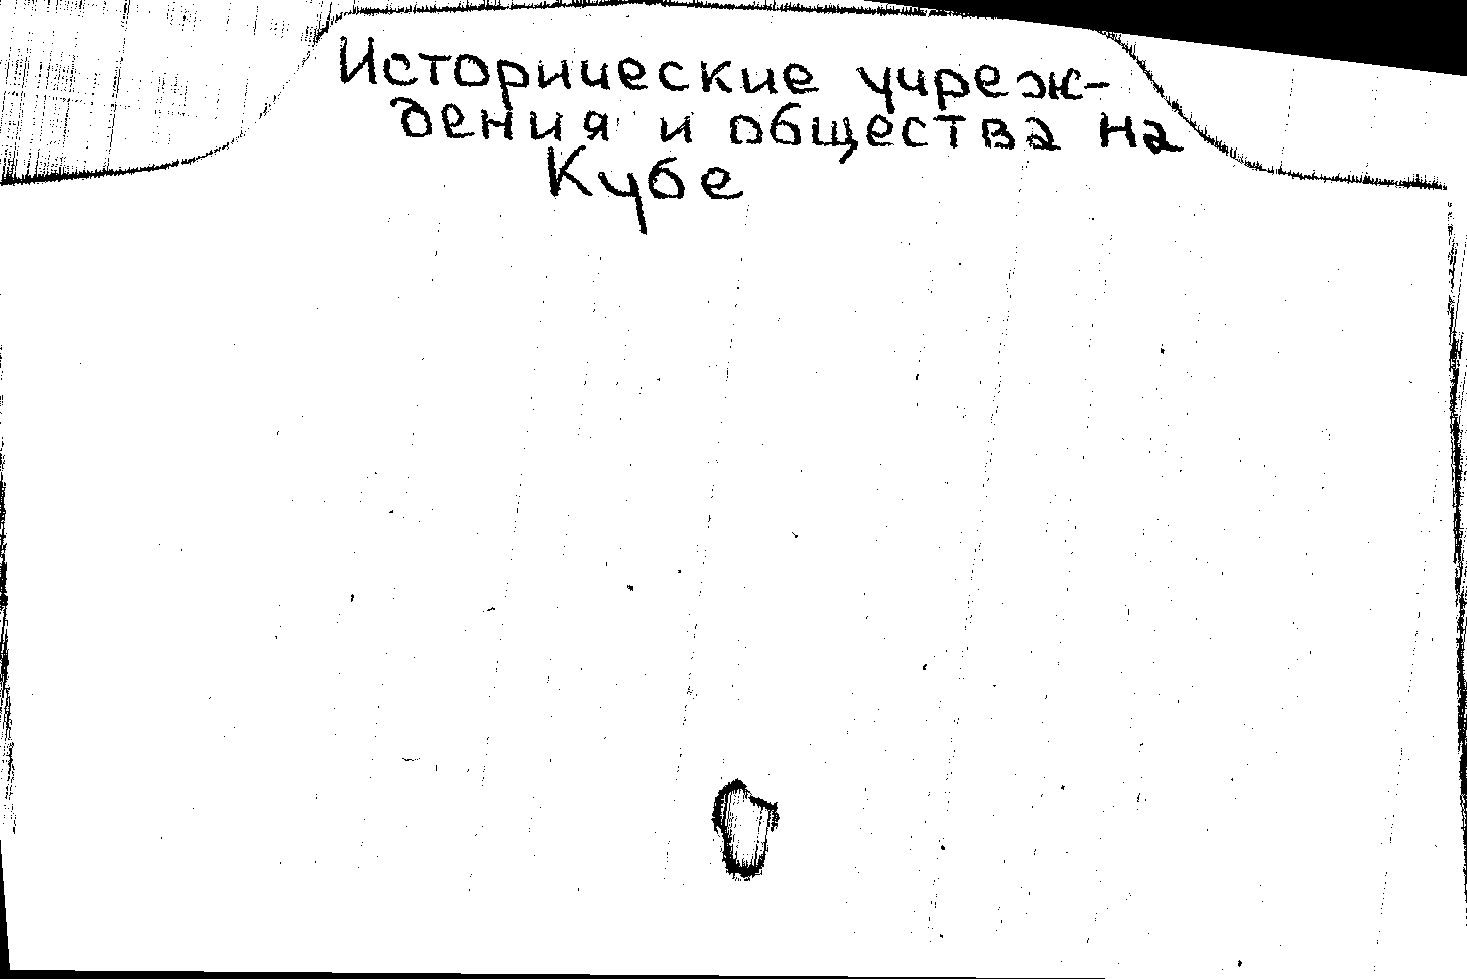 Исторические учреж-
дения и общества на
Кубе